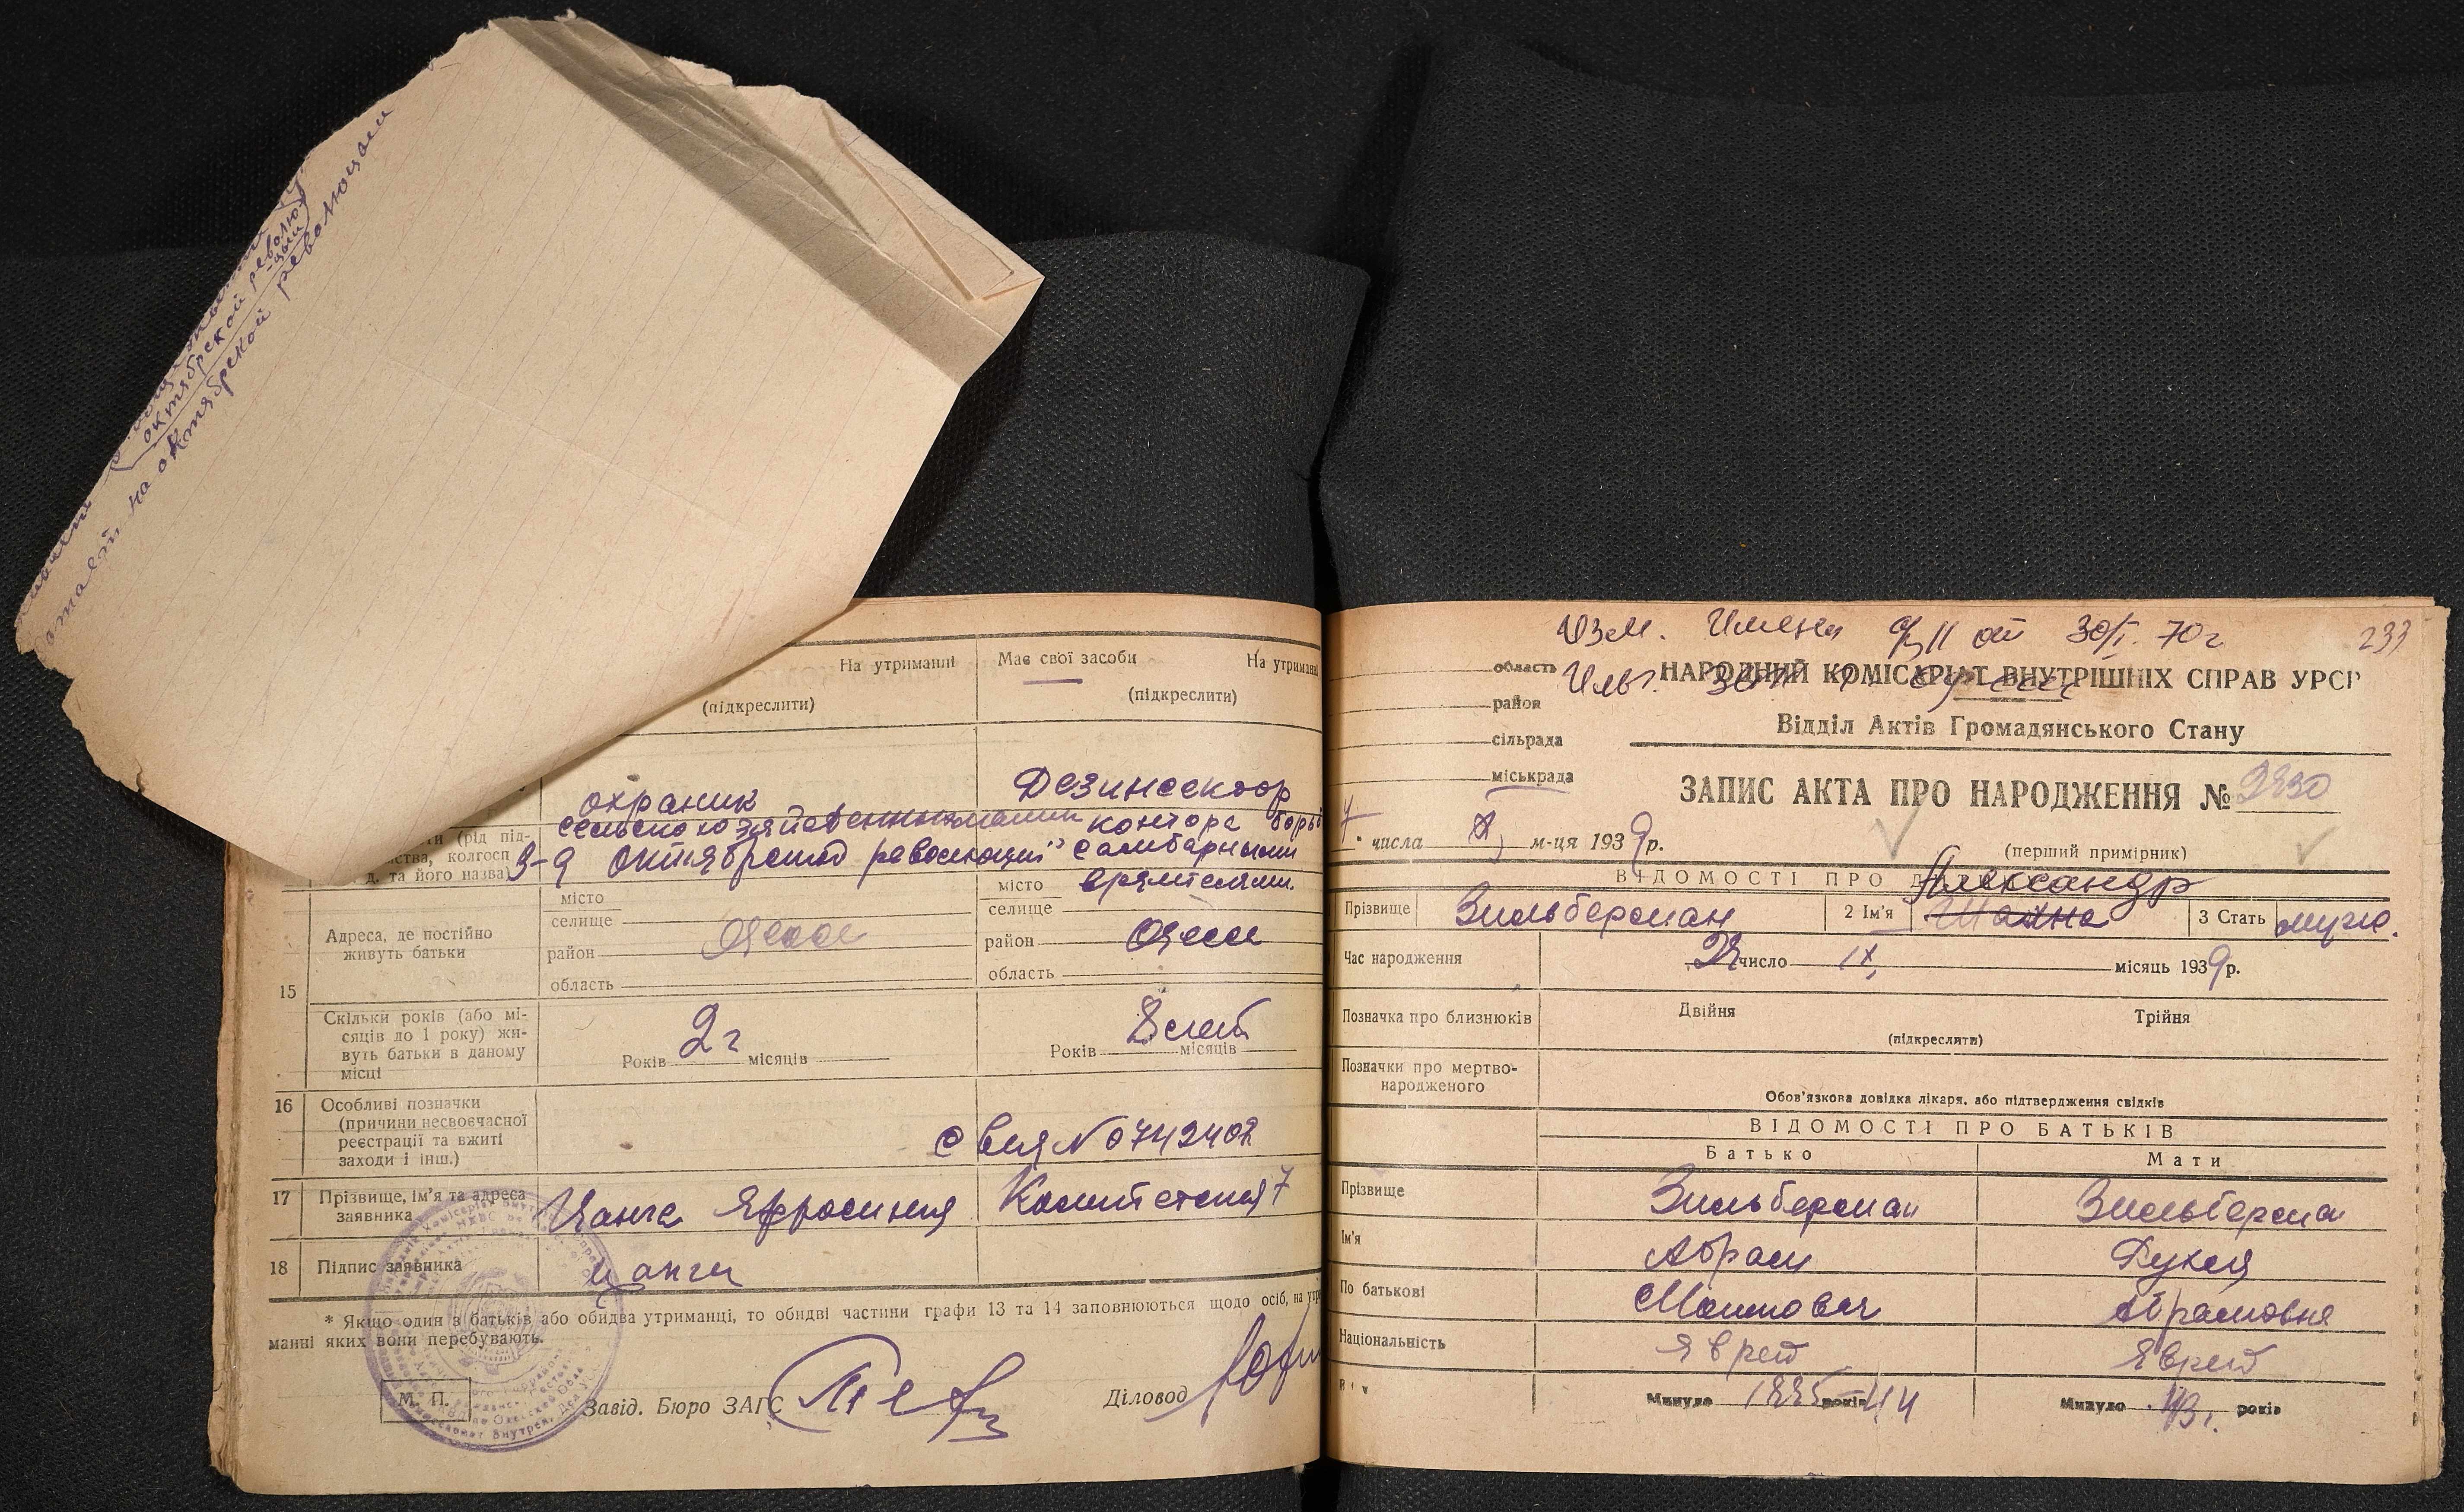 октябрской революции
на октябрской революции
На утриманні
Має свої засоби
На утриманні
(підкреслити)
(підкреслити)
охраник
Дезинсектор
контора борьб
(рід під-
колгосп
3-д Октябрской революции"
та його назва)
Адреса, де постійно
живуть батьки
місто
селище
район Одесса
область
місто
селище
район Одесса
область
15
Скільки років (або мі-
сяців до 1 року) жи-
вуть батьки в даному
місці
Років 2 г місяців
Років 8 лет місяців
16
Особливі позначки
(причини несвоєчасної
реєстрації та вжиті
заходи і інш.)
№ 0742402
17
Прізвище, ім'я та адреса
заявника
Цанга Ефросиния
7
18
Підпис заявника
Цанга
* Якщо один з батьків або обидва утриманці, то обидві частини графи 13 та 14 заповнюються щодо осіб, на утри
манні яких вони перебувають.
М. П.
Завід. Бюро ЗАГС
Діловод
Изм. Имени от 30/I. 70 г
233
область
район
сільрада
міськрада
НАРОДНИЙ КОМІСАРІАТ ВНУТРІШНІХ СПРАВ УРСР
Відділ Актів Громадянського Стану
ЗАПИС АКТА ПРО НАРОДЖЕННЯ №
7 " числа X м-ця 1939 р.
(перший примірник)
ВІДОМОСТІ ПРО
Александр
Прізвище Зильберман 2 Ім'я Шахна 3 Стать муж.
Час народження число IX місяць 1939 р.
Позначка про близнюків
Двійня
Трійня
(підкреслити)
Позначки про мертво-
народженого
Обов'язкова довідка лікаря, або підтвердження свідків
ВІДОМОСТІ ПРО БАТЬКІВ
Батько
Мати
Прізвище Зильберман Зильберман
Ім'я Абрам Рухля
По батькові Абрамовна
Національність Еврей Еврей
Минуло 1895 років 44
Минуло 43 г. років